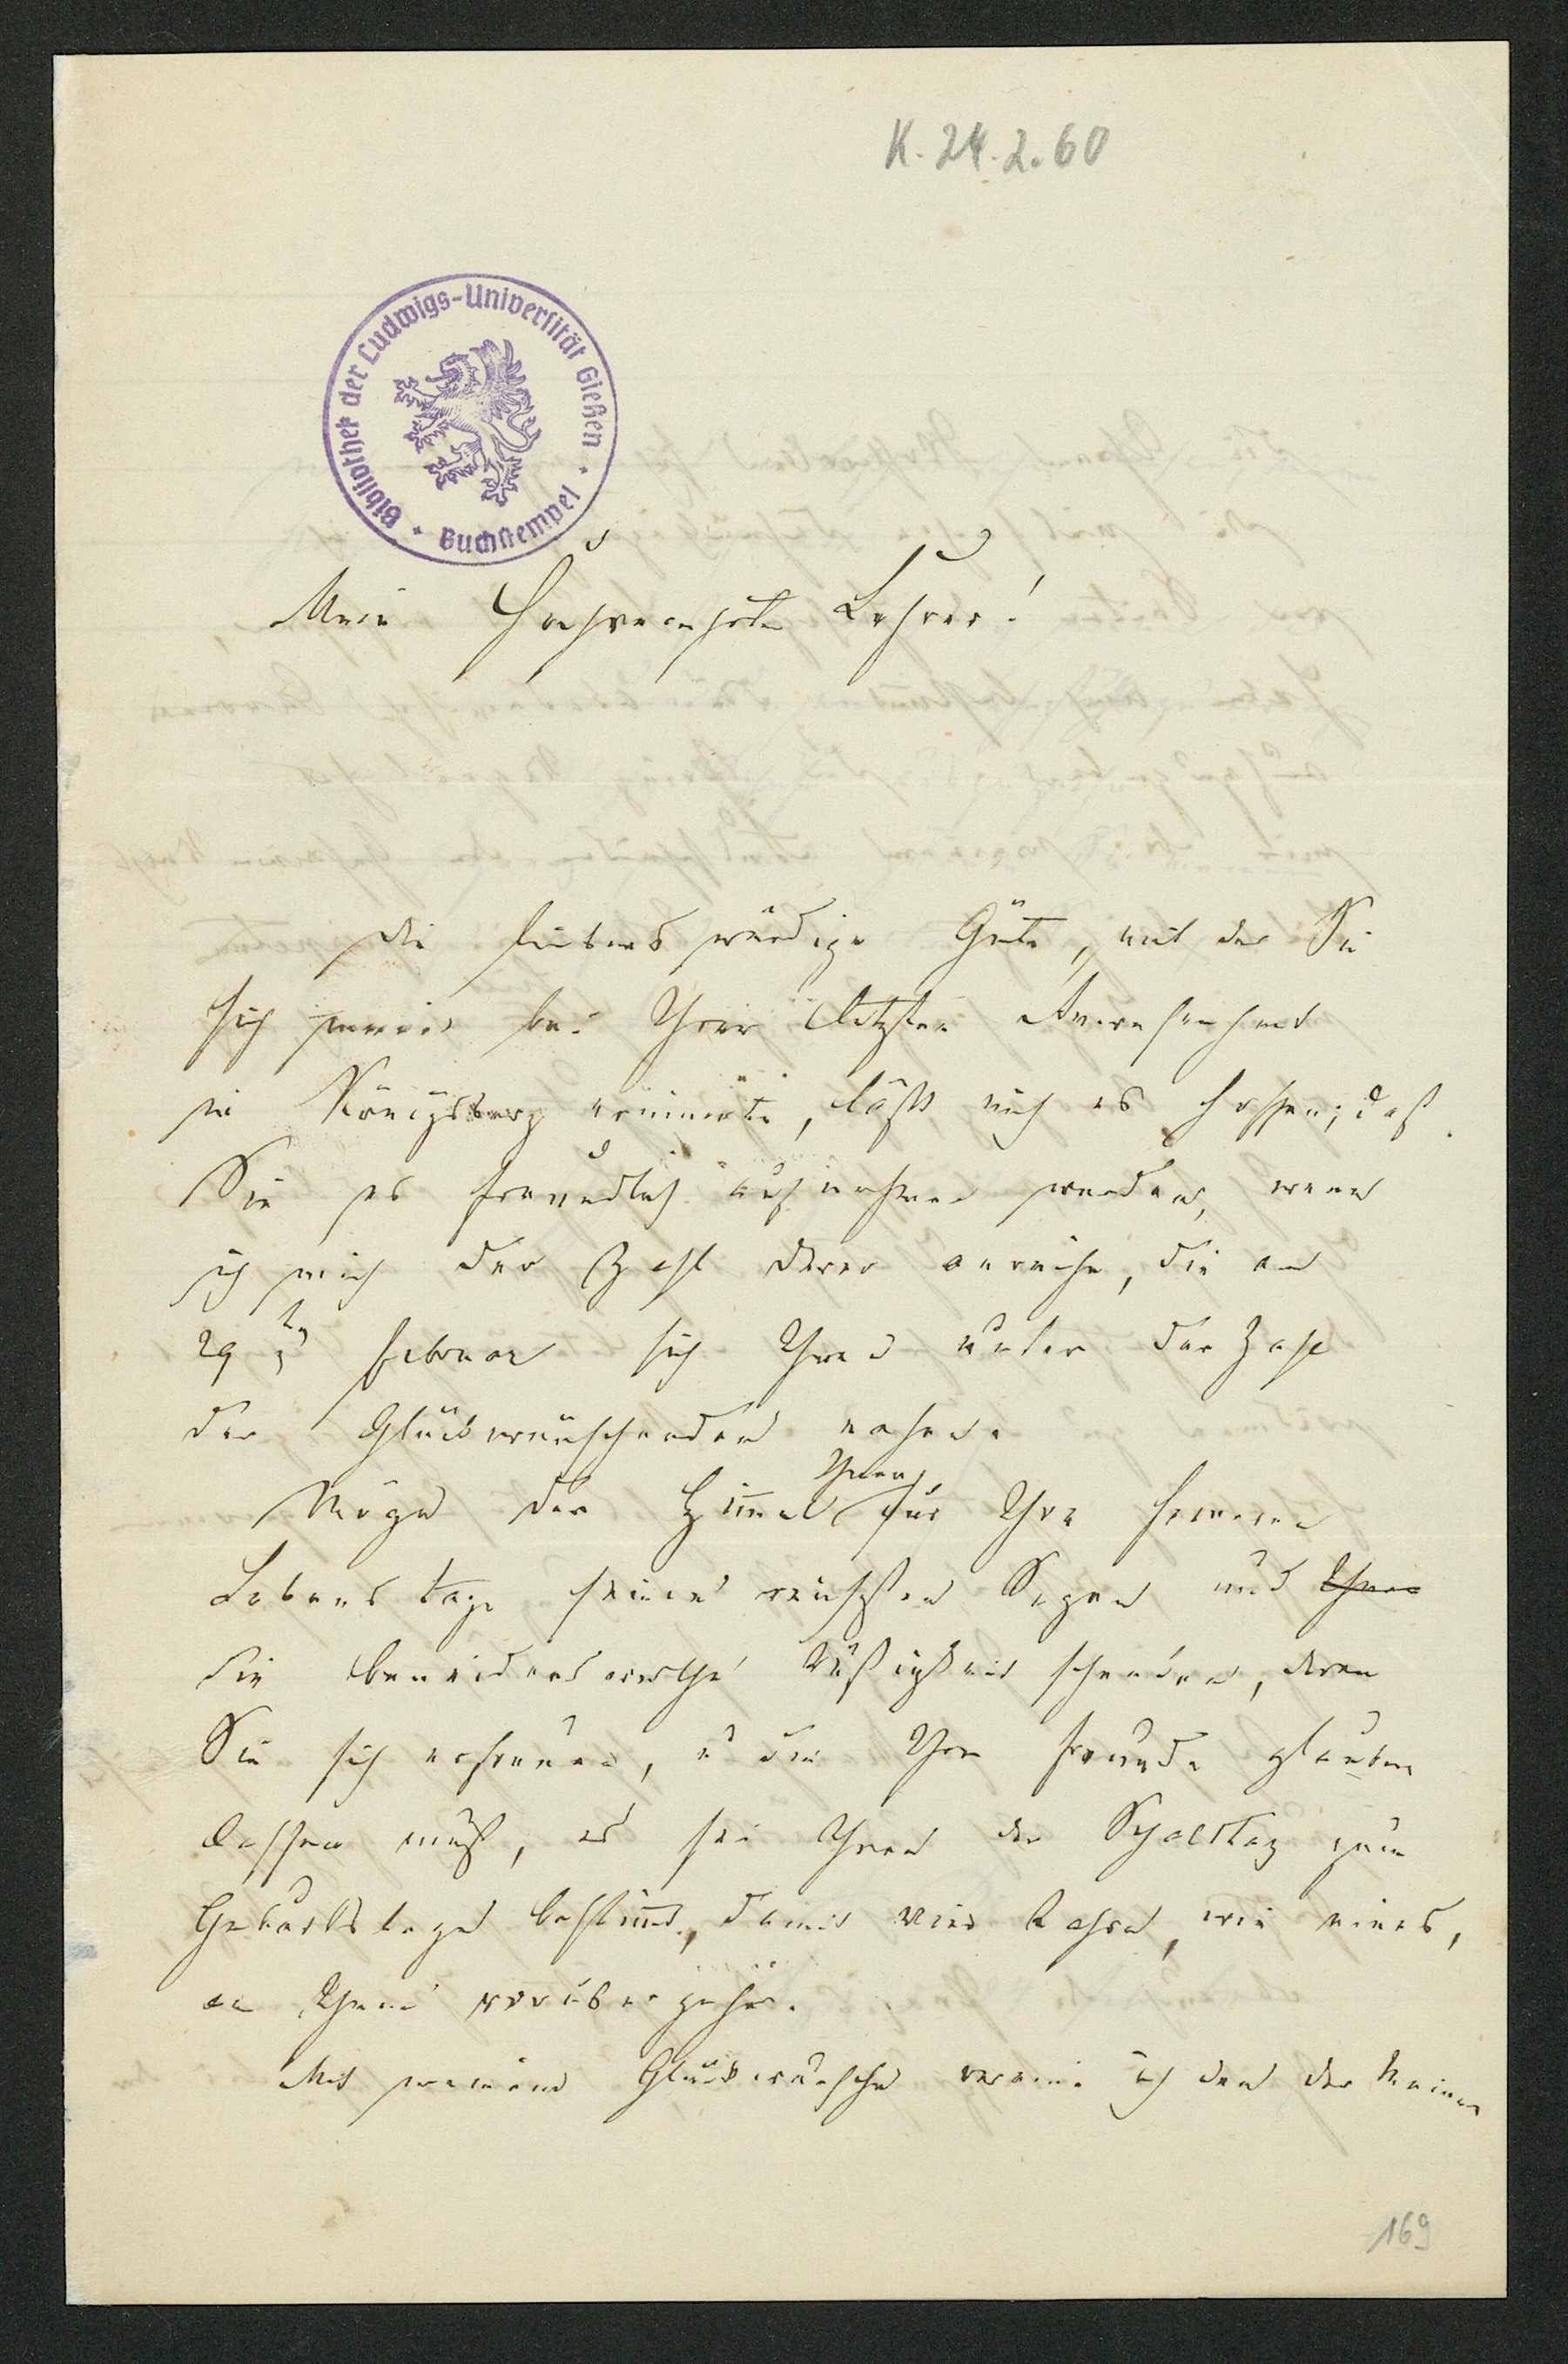 K. 24.2.60
Bibliothek der Ludwigs-Universität Gießen
Buchstempel
Mein Hochverehrter Lehrer!
Die liebenswürdige Güte, mit der Sie
sich meiner bei Ihrer letzten Anwesenheit
in Königsberg erinnerten, läßt mich es hoffen, daß
Sie es freundlich aufnehmen werden, wenn
ich mich der Zahl derer anreihe, die am
29ten Februar sich Ihnen unter der Zahl
der Glückwünschenden nahen.
Möge der Himmel Ihnen für Ihre ferneren
Lebenstage seinen reichsten Segen und Ihnen
die beneidenswerthe Rüstigkeit schenken, deren
Sie sich erfreuen, u die Ihre Freunde glauben
lassen muß, es sei Ihnen der Schalttag zum
Geburtstage bestimmt, damit vier Jahre, wie eines,
an Ihnen vorübergehe.
Mit meinem Glückwunsche vereine ich den der Meinen
169